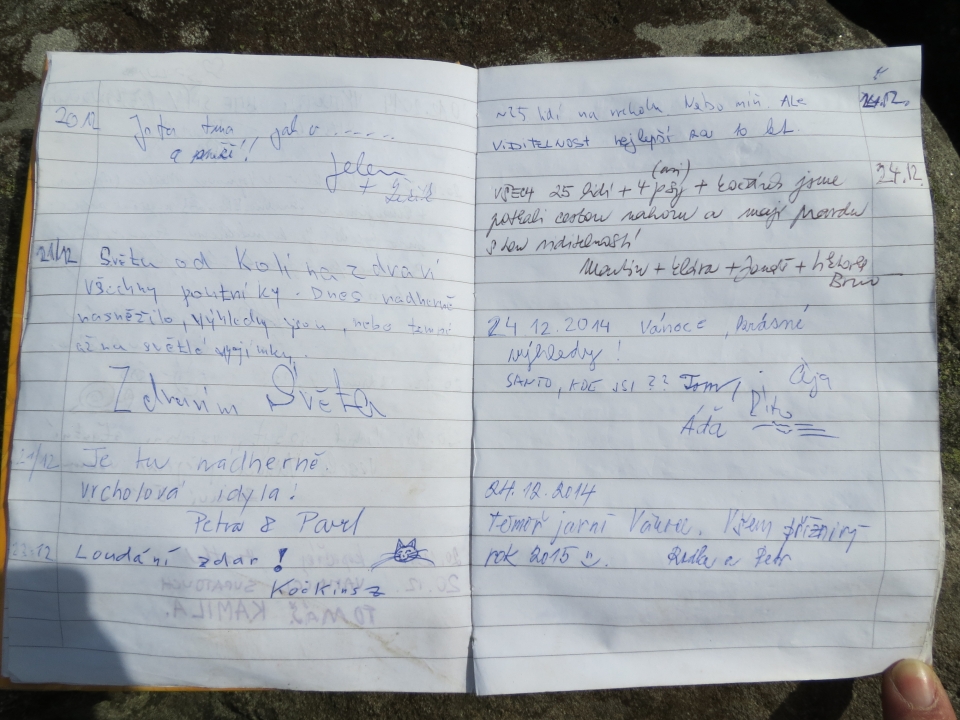 20 12 Je to tma, jak v ......
a prší!!
Jelen
+
21/12 Světu od Kolína zdraví
všechny poutníky. Dnes nádherně
nasněžilo, výhledy jsou, nebo
až na světlé vyjímky.
Zdravím Světa
21/12 Je tu nádherně.
vrcholová idyla!
Petra & Pavel
22.12 Loudání zdar!
Kočkinsz
TOMÁŠ KAMILA.
~25 lidí na vrcholu. Nebo míň. Ale 24.12.
VIDITELNOST nejlepší za 10 let.
(asi)
VŠECH 25 lidí + 4 psy + kočárek jsme 24.12.
potkali cestou nahoru a mají pravdu
s tou viditelností
Martin + Klára + Jonáš +
Brno
24.12.2014 Vánoce, krásné
výhledy!
SANTO, KDE JSI ?? Tom, Ája
Áďa Rito
24.12.2014
Téměř jarní Vánoce. Všem příznivý
rok 2015 Petr